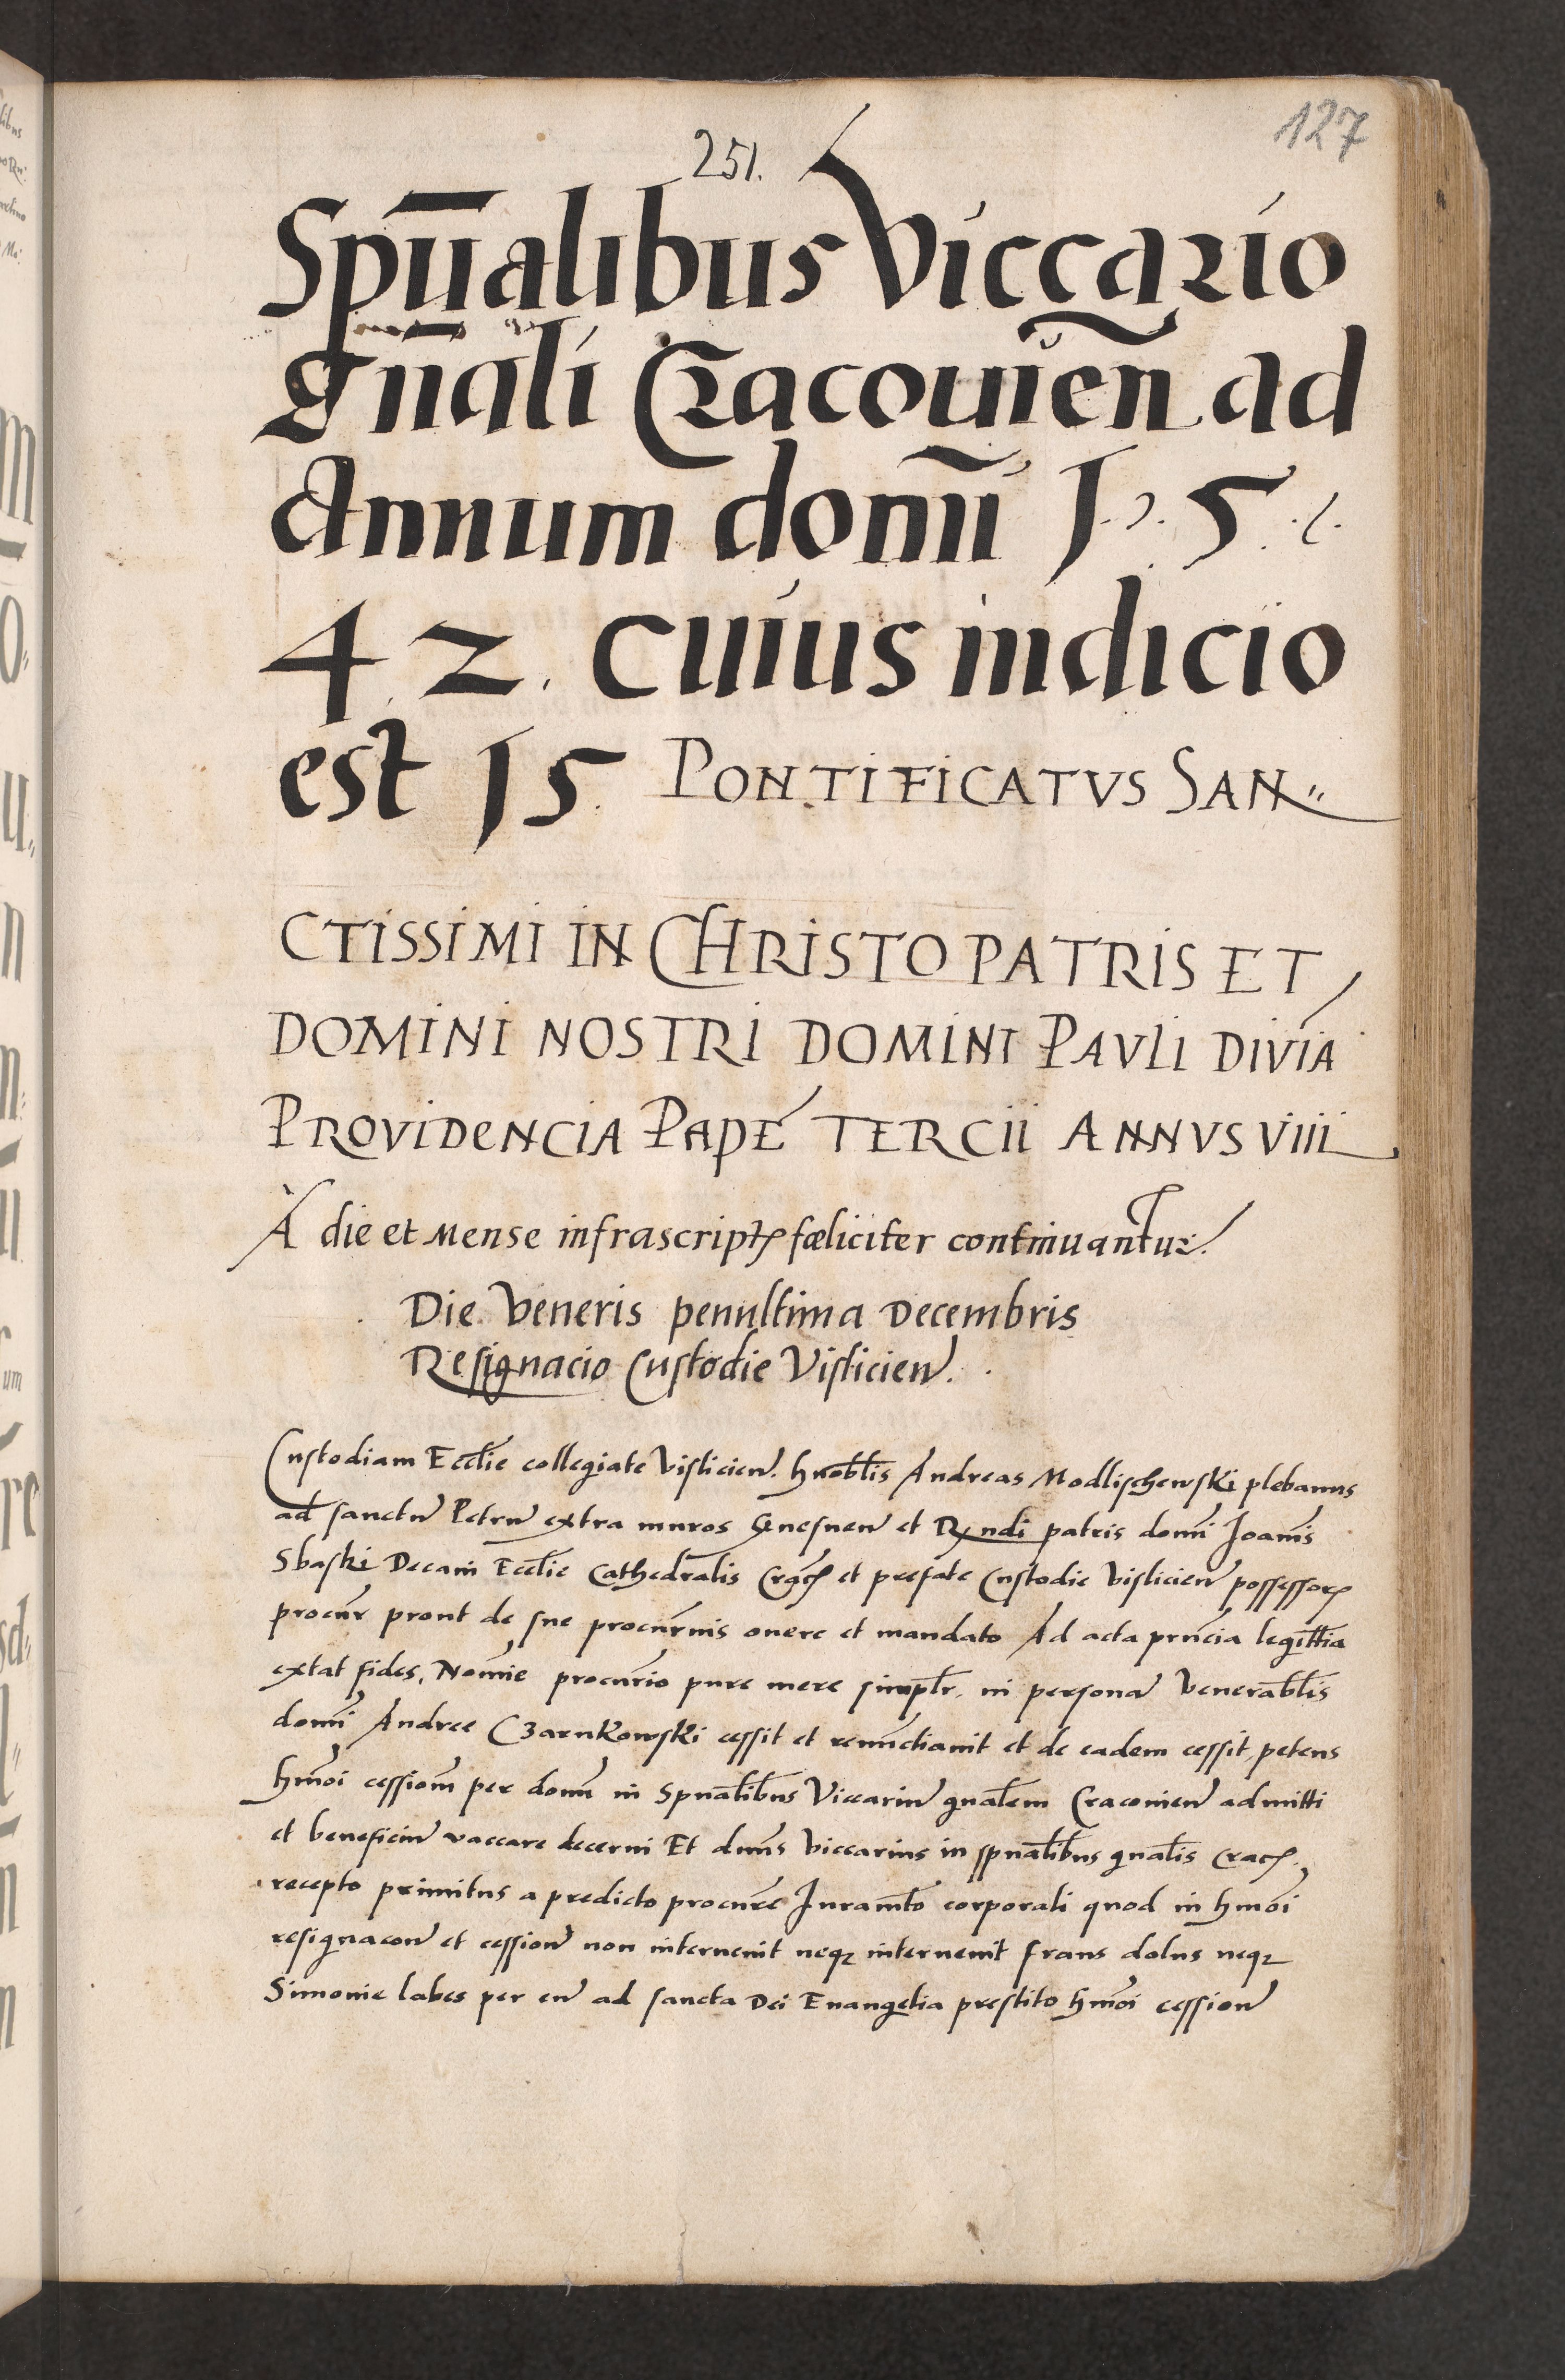 127
251.
Sp̄ualibus Viccario
gn̄ali Cracouien̄ ad
Annum domī 1.5.
42. cuius indicio
est 15 PONTIFICATVS SAN„
CTISSIMI IN CHRISTO PATRIS ET
DOMINI NOSTRI DOMINI PAVLI DIVIA
PROVIDENCIA PAPE TERCII ANNVS VIII
A die et Mense infrascriptꝭ fœliciter continuantur.
Die Veneris penultima Decembris
Resignacio Custodie Vislicien̄.
Custodiam Eccl̄ie collegiate Vislicien̄. hnobl̄is Andreas Modlischewski plebanus
ad sanctū Petrū extra muros Gnesnen̄ et Rn̄di patris domī Joan̄is
Sbaski Decani Eccl̄ie Cathedralis Cracꝭ et prefate Custodie Vislicien̄ possessorꝭ
procūr prout de sue procūrnis onere et mandato Ad acta prn̄cia legittīa
extat fides, Nom̄ie procūrio pure mere simpl̄r. in personā Venerabl̄is
domī Andree Czarnkowski cessit et renūctiauit et de eadem cessit, petens
hm̄oi cessionē per domī in Spūalibus Viccariū gn̄alem Cracouien̄ admitti
et beneficiū vaccare decerni Et dn̄us Viccarius in spūalibus gn̄alis Cracꝭ.
recepto primitus a predicto procūre Juram̄to corporali quod in hm̄oi
resignacōn̄ et cession̄ non interuenit neqꝫ interuenit fraus dolus neqꝫ
Simonie labes per eū ad sancta Dei Euangelia prestito hm̄oi cession̄